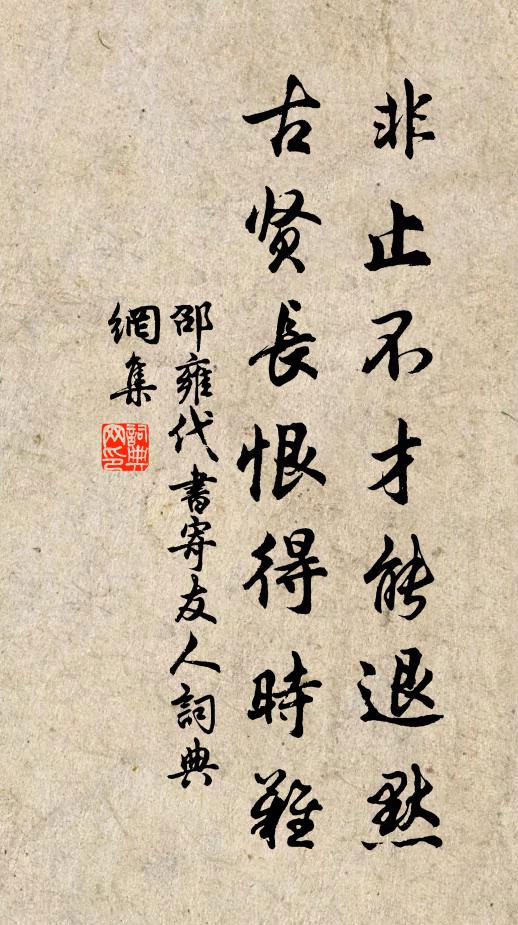 非止不才能退默
古贤長恨得時難
邵雍代書寄友人詞典
網集
詞典
网印